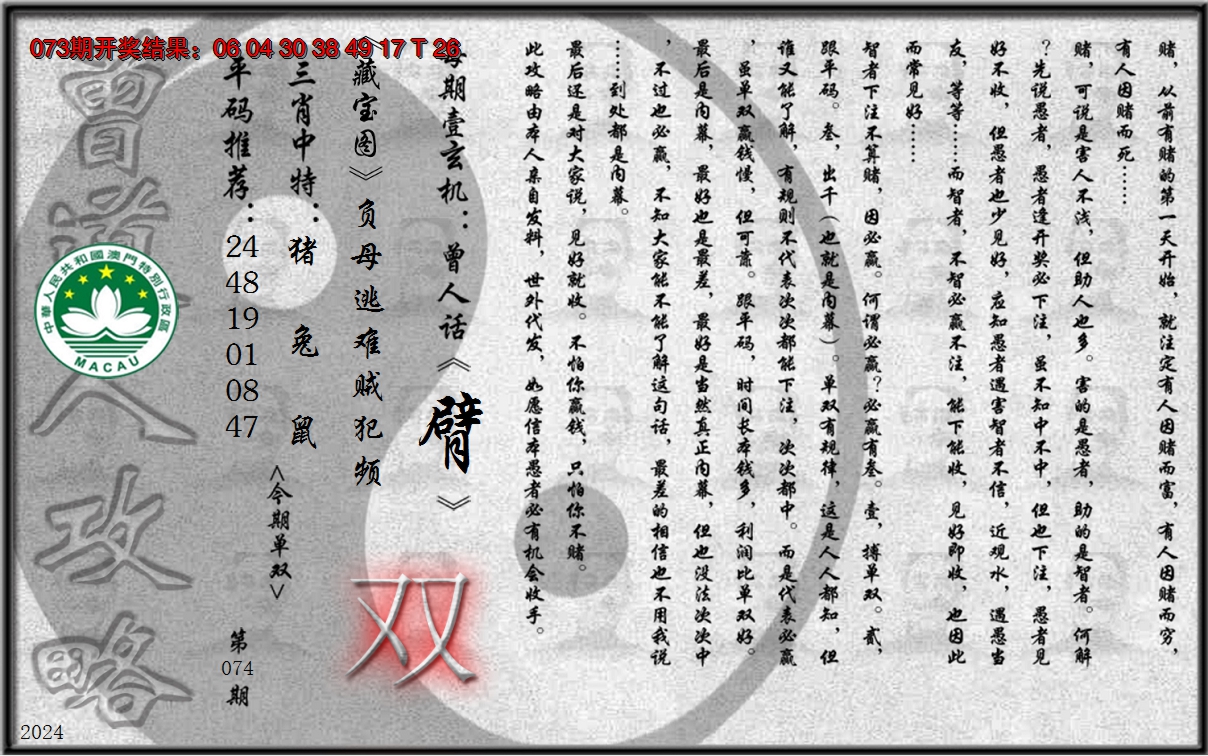 073期开奖结果：06 04 30 38 49 17 T 26
赌，从前有赌的第一天开始，就注定有人因赌而富，有人因赌而穷，
有人因赌而死……
赌，可说是害人不浅，但助人也多。害的是愚者，助的是智者。何解
？先说愚者，愚者逢开奖必下注，虽不知中不中，但也下注，愚者见
好不收，但愚者也少见好，应知愚者遇害智者不信，近观水，遇愚当
友，等等……而智者，不智必赢不注，能下能收，见好即收，也因此
而常见好……
智者下注不算赌，因必赢。何谓必赢？必赢有叁。壹，搏单双。贰，
跟平码。叁，出千（也就是内幕）。单双有规律，这是人人都知，但
谁又能了解，有规则不代表次次都能下注，次次都中。而是代表必赢
，虽单双赢钱慢，但可靠。跟平码，时间长本钱多，利润比单双好。
最后是内幕，最好也是最差，最好是当然真正内幕，但也没法次次中
，不过也必赢，不知大家能不能了解这句话，最差的相信也不用我说
……到处都是内幕。
最后还是对大家说，见好就收。不怕你赢钱，只怕你不赌。
此攻略由本人亲自发料，世外代发，如愿信本愚者必有机会收手。
每期壹玄机：曾人话《臂》
《藏宝图》负母逃难贼犯频
双
三肖中特：猪 兔 鼠
<今期单双>
平码推荐：24 48 19 01 08 47
第074期
曾道人攻略
中華人民共和國澳門特別行政區
MACAU
2024